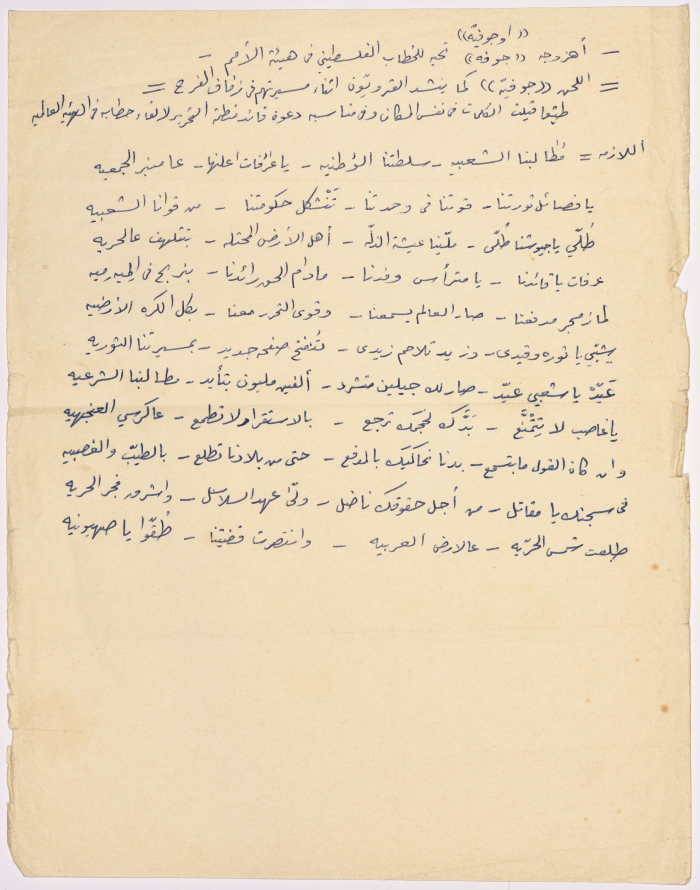 ((اوجوفيّة))
— أهزوجه ((جوفه)) تحيه للخطاب الفلسطيني في هيئة الأمم —
= اللحن ((جوفيّة)) كما ينشد القرويّون اثناء مسيرتهم في زفاف الفرح =
طبعا قيلت الكلمات في نفس المكان وفي مناسبه دعوة قائد منظمة التحرير لالقاء خطابه في الهيئه العالميه
اللازمه = مطالبنا الشعبيه - سلطتنا الوطنيه - يا عرفات اعلنها - عا منبر الجمعيه
يا فصائل ثورتنا - قوتنا في وحدتنا - تنشكل حكومتنا - من قوانا الشعبيه
طُلّي يا جيوشنا طُلّي - ملّينا عيشة الذلّه - أهل الأرض المحتله - بتتلهف عالحريه
عرفات يا قائدنا - يا مترأس وفدنا - مادام الحق رائدنا - بنربح في الميه ميه
لما زمجر مدفعنا - صار العالم يسمعنا - وقوى التحرر معنا - بكل الكره الأرضيه
شبّي يا ثوره وقيدي - وزيد تلاحم زيدي - لنفتح صفحه جديده - بمسيرتنا الثوريه
عَيّدْ يا شعبي عيّد - صار لك جيلين متشرد - ألفين مليون بتأيد - مطالبنا الشرعيه
يا غاصب لا تِتْمَنَّع - بَدَّك لحجمك ترجع - بالاستقرار لا تطمع - عا كرسي العنجهيه
وان كان القول ما بتسمع - بدنا نحاكيك بالمدفع - حتى من بلادنا تطلع - بالطيّب والغصبيه
في سجنك يا مقاتل - من أجل حقوقك ناضل - ولّى عهد السلاسل - واشرق فجر الحريه
طلعت شمس الحرّيه - عالارض العربيه - وانتصرت قضيتنا - طُقّوا يا صهيونيه